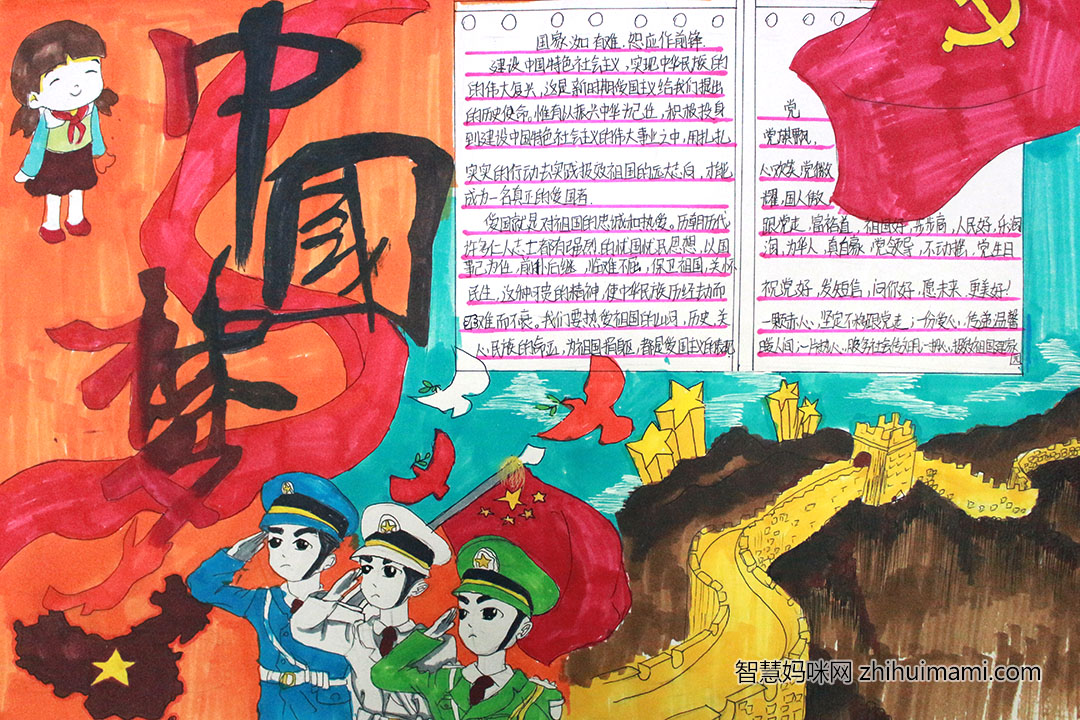 中国梦
国家如有难.您应作前锋
建设中国特色社会主义,实现中华民族的
的伟大复兴,这是新时期爱国主义给我们提出
的历史使命,惟有从振兴中华为己任,积极投身
到建设中国特色社会主义的伟大事业之中,用扎扎
实实的行动去实践报效祖国的远大志向,才能
成为一名真正的爱国者.
爱国就是对祖国的忠诚和热爱,历朝历代
许多仁人志士都有强烈的忧国忧民思想,以国
事己为任,前仆后继,临难不屈,保卫祖国,关怀
民生,这种可贵的精神,使中华民族历经劫而
难而不衰,我们要热爱祖国的山河,历史,关
心民族的命运,为祖国捐躯,都是爱国主义的表现
党
党旗飘,
心欢笑,党徽
耀,国人傲,
跟党走,富裕道,祖国好,步步高,人民好,乐淘
淘,为华人,真自豪,党领导,不动摇,党生日
祝党好,发短信,问你好,愿未来,更美好!
一颗赤心,坚定不移跟党走;一份爱心,传递温馨
暖人间;一片热心,服务社会
智慧妈咪网 zhihuimami.com